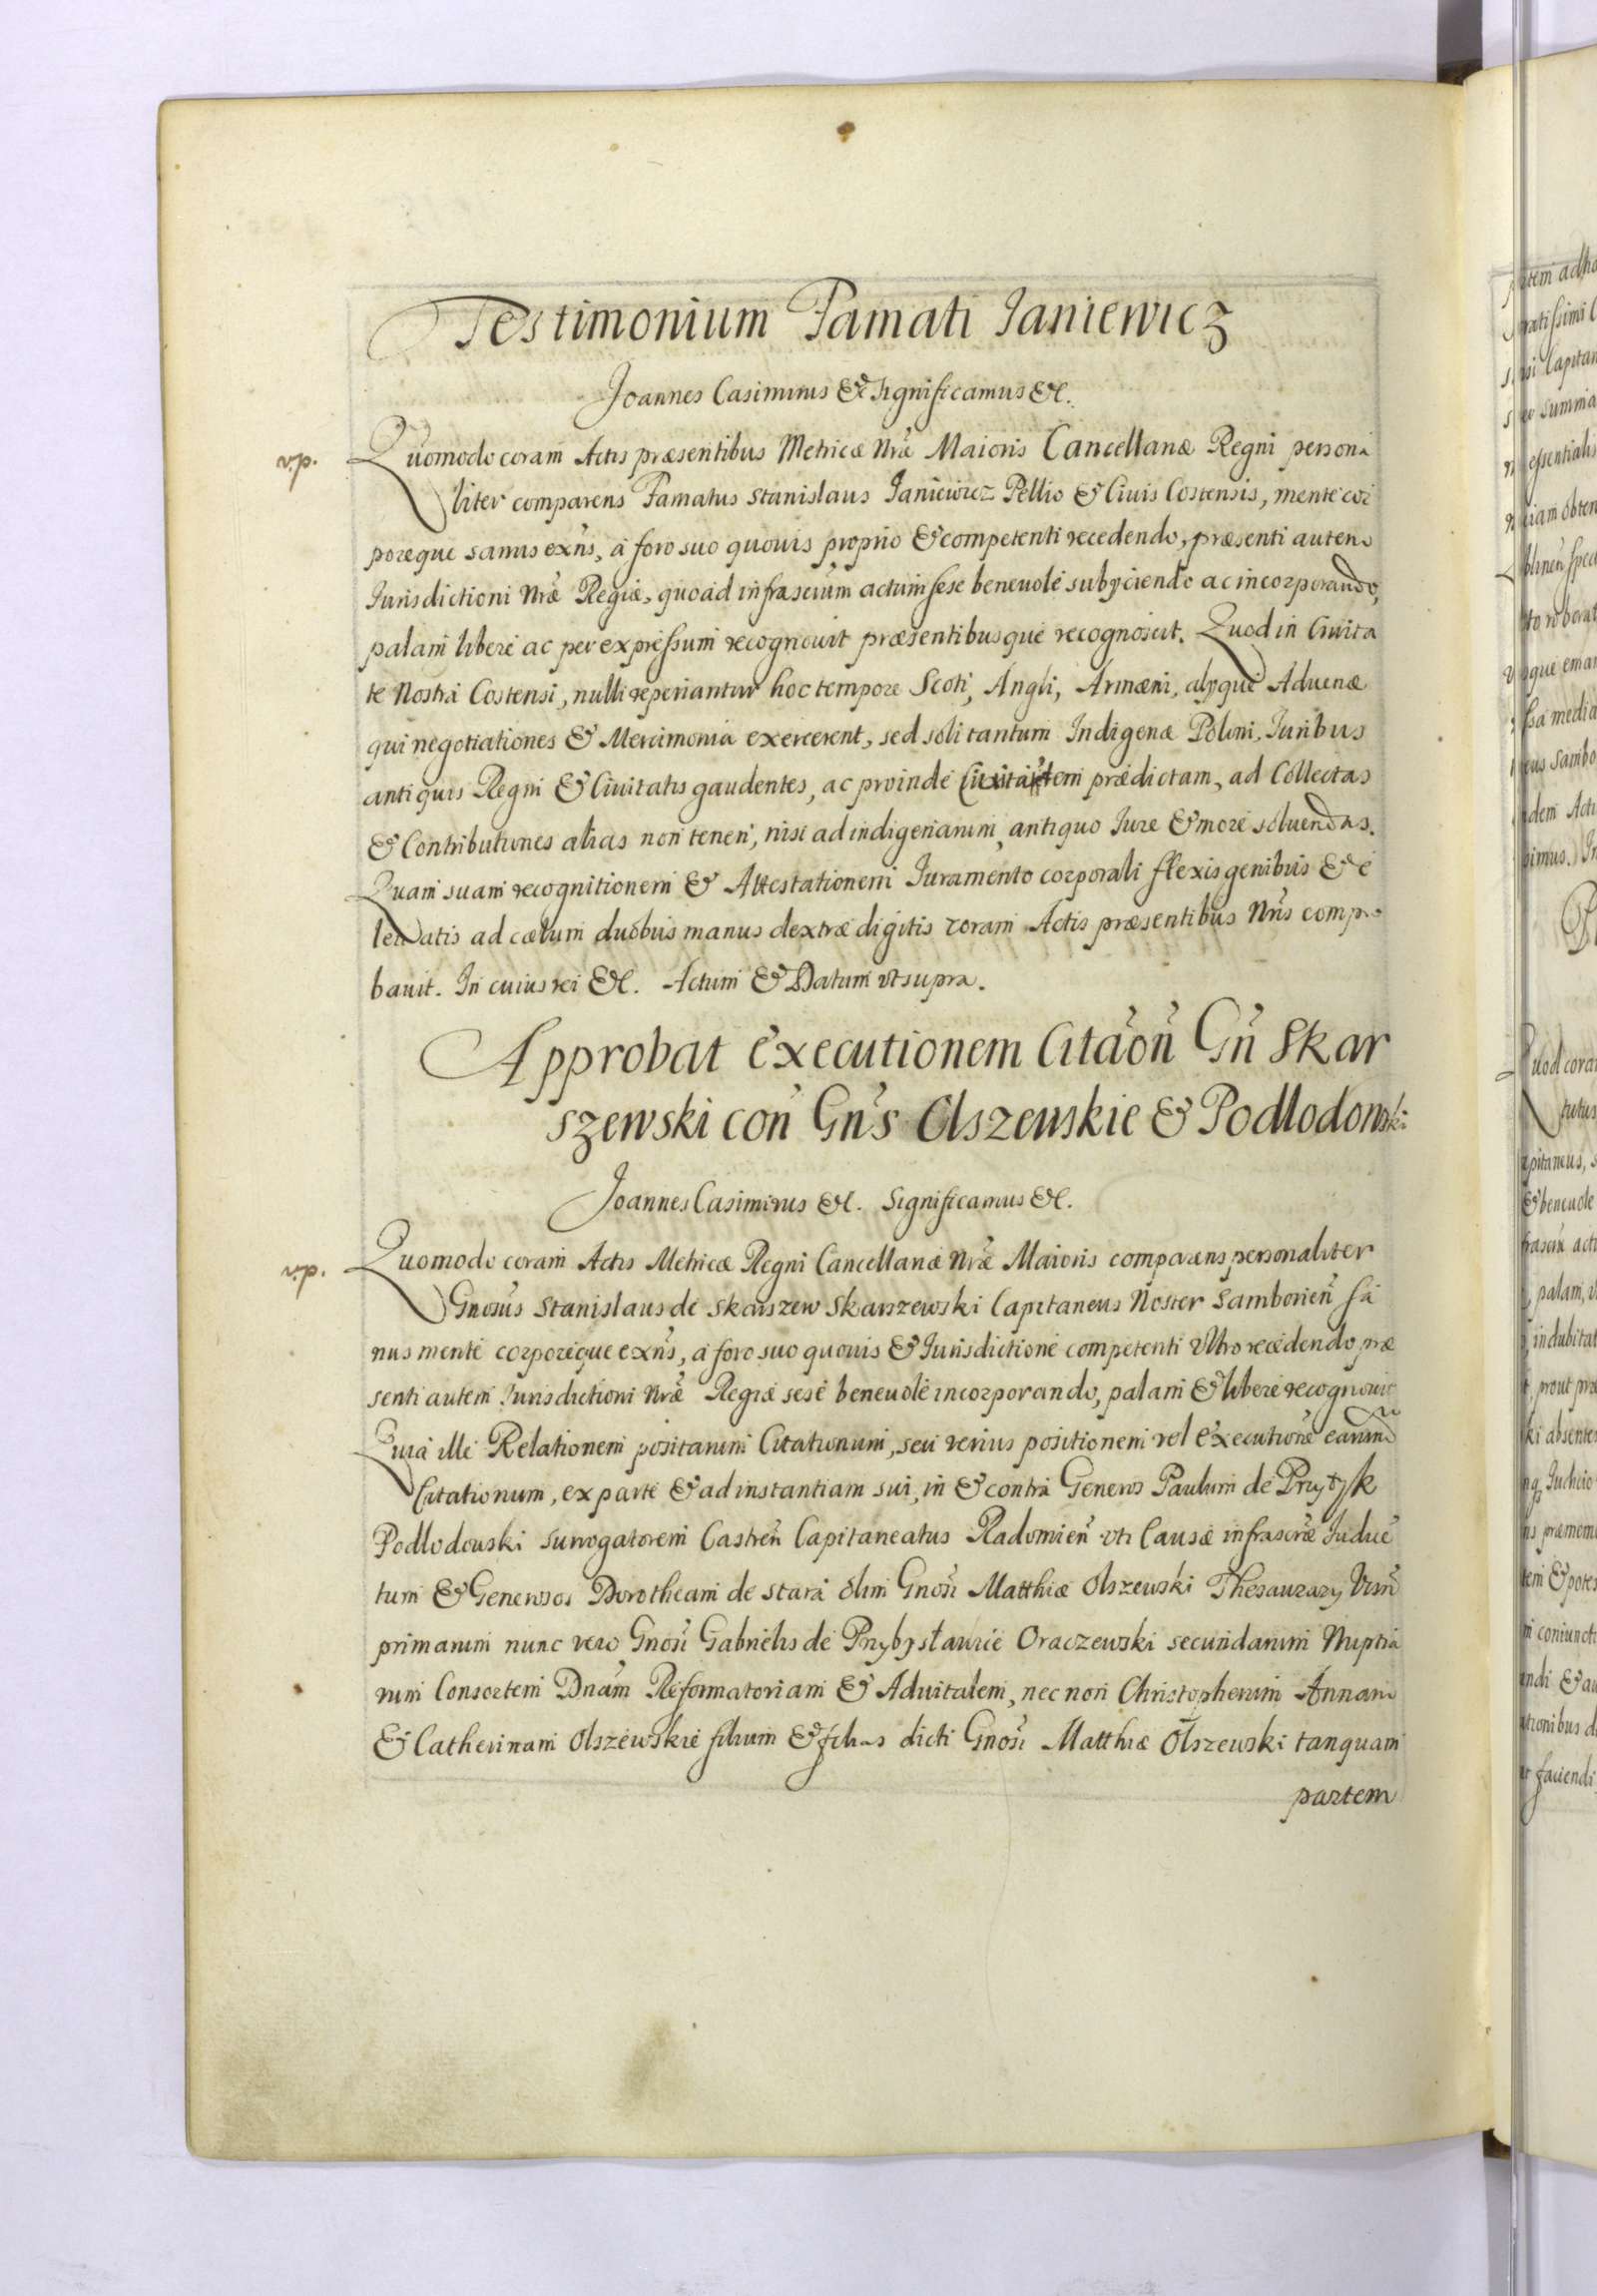 Testimonium Famati Janiewicz
Joannes Casimirus &c Significamus &c.
v.p.
Quomodo coram Actis præsentibus Metricæ Nræ Maioris Cancellariæ Regni persona
liter comparens Famatus Stanislaus Janiewicz Pellio & Civis Costensis, mente cor
poreque sanus exñs, à foro suo quovis proprio & competenti recedendo, præsenti autem
Jurisdictioni Nræ Regiæ, quoad infrascrium actum sese benevolè subyciendo ac incorporando,
palam liberè ac per expressum recognovit præsentibusque recognoscit. Quod in Civita
te Nostrà Costensi, nulli reperiantur hoc tempore Scoti, Angli, Armæni, alyque Advenæ
qui negotiationes & Mercimonia exercerent, sed soli tantum Indigenæ Poloni, Juribus
antiquis Regni & Civitatis gaudentes, ac proinde Civitatem prædictam, ad Collectas
& Contributiones alias non teneri, nisi ad indigenarum, antiquo Jure & more solvendas.
Quam suam recognitionem & Attestationem Juramento corporali flexis genibus & e
levatis ad cælum duobus manus dextræ digitis coram Actis præsentibus Nris compro
bavit. In cuius rei &c. Actum & Datum vt supra.
Approbat executionem Citãoñ Gñ Skar
szewski coñ Gñs Olszewskie & Podlodowski
Joannes Casimirus &c. Significamus &c.
v.p.
Quomodo coram Actis Metricæ Regni Cancellariæ Nræ Maioris comparens personaliter
Gnosus Stanislaus de Skarszew Skarszewski Capitaneus Noster Samborieñ sa
nus mente corporeque exñs, à foro suo quovis & Jurisdictione competenti vltro recedendo præ
senti autem Jurisdictioni Nræ Regiæ sese benevolè incorporando, palam & liberè recognovit
Quia ille Relationem positarum Citationum, seu verius positionem vel executionẽ earund
Citationum, ex parte & ad instantiam sui, in & contra Generos Paulum de Przytyk
Podlodowski surrogatorem Castreñ Capitaneatus Radomieñ vti Causæ infrascræ Induc
tum & Generosos Dorotheam de Stara olim Gnosi Matthiæ Olszewski Thesaurary
primarum nunc vero Gnosi Gabrielis de Przybysławice Oraczewski secundarum Nuptia
rum Consortem Dnam Reformatoriam & Advitalem, nec non Christopherum Annam
& Catherinam Olszewskie filium & filias dicti Gnosi Matthiæ Olszewski tanquam
partem